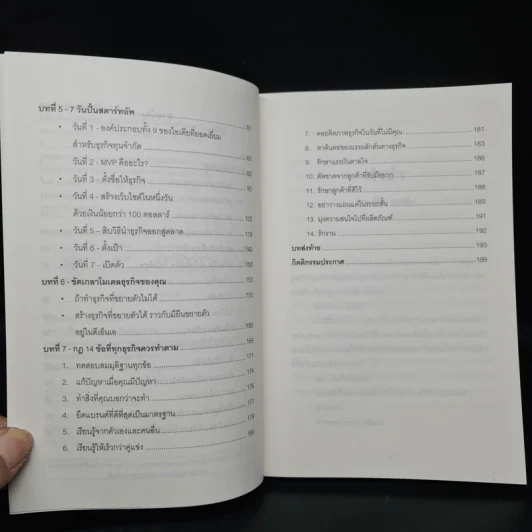 บทที่ 5 - 7 วันปั้นสตาร์ทอัพ 61
• วันที่ 1 - องค์ประกอบทั้ง 9 ของไอเดียที่ยอดเยี่ยม
สำหรับธุรกิจทุนจำกัด
วันที่ 2 - MVP คืออะไร?
• วันที่ 3 - ตั้งชื่อให้ธุรกิจ
• วันที่ 4 - สร้างเว็บไซต์ในหนึ่งวัน
ด้วยเงินน้อยกว่า 100 ดอลลาร์
• วันที่ 5 – สิบวิธีนำธุรกิจออกสู่ตลาด
• วันที่ 6 - ตั้งเป้า
• วันที่ 7 - เปิดตัว
บทที่ 6 - ขัดเกลาโมเดลธุรกิจของคุณ 153
• ถ้าทำธุรกิจที่ขยายตัวไม่ได้ 155
• สร้างธุรกิจที่ขยายตัวได้ ราวกับมียีนขยายตัว
อยู่ในดีเอ็นเอ
บทที่ 7 - กฎ 14 ข้อที่ทุกธุรกิจควรทำตาม
1. ทดสอบสมมุติฐานทุกข้อ 171
2. แก้ปัญหาเมื่อคุณมีปัญหา 174
3. ทำสิ่งที่คุณบอกว่าจะทำ 176
4. ยึดแบรนด์ที่ดีที่สุดเป็นมาตรฐาน 177
5. เรียนรู้จากตัวเองและคนอื่น 179
6. เรียนรู้ให้เร็วกว่าคู่แข่ง 180
7. คอยคิดภาพธุรกิจในวันที่ไม่มีคุณ 181
8. หาต้นตอของแรงผลักดันทางธุรกิจ 183
9. รักษาแรงบันดาลใจ 186
10. ตัดขาดจากลูกค้าที่รับมือยาก 187
11. รักษาลูกค้าที่ดีไว้ 188
12. อย่าวางแผนแค่ในระยะสั้น 189
13. มุ่งความสนใจไปที่ผลิตภัณฑ์ 191
14. รักงาน 192
บทส่งท้าย 193
กิตติกรรมประกาศ 199